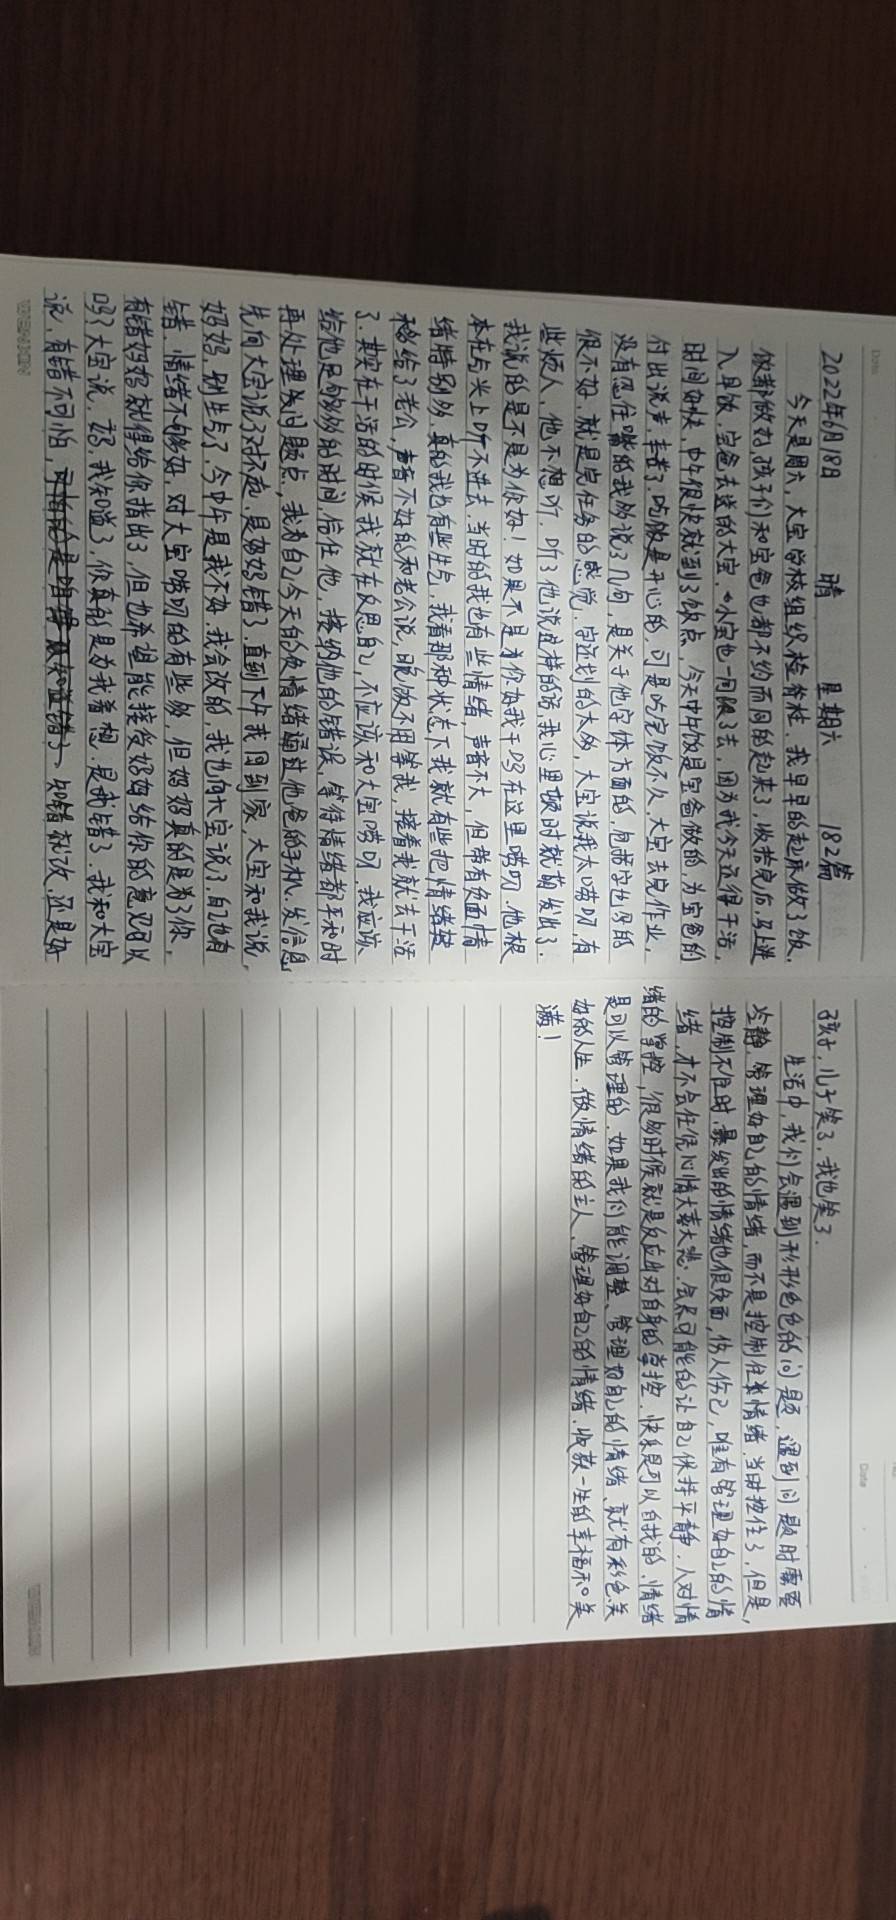 Date
2022年6月18日 晴 星期六 182篇
今天是周六，大宝学校组织检脊柱，我早早的起床做了饭，
饭都做好，孩子们和宝爸也都不约而同的起来了，收拾完后，马上进
入早饭，宝爸去送的大宝，小宝也一同跟了去，因为我今天还得干活，
时间好快，中午很快就到了饭点，今天中午饭是宝爸做的，为宝爸的
付出说声，辛苦了，吃饭是开心的，可是吃完饭不久，大宝去完作业，
没有忍住嘴的我的说了几句，是关于他字体方面的，包括字也写的
很不好，就是完任务的感觉，字还划的太多，大宝说我太唠叨，有
些烦人，他不想听，听了他说这样的话，我心里顿时就萌发出了，
我说的是不是为你好！如果不是为你好我干吗在这里唠叨，他根
本在与头上听不进去，当时的我也有些情绪，声音不大，但带有负面情
绪特别多，真的我也有些生气，我看那种状态下我就有些把情绪转
移给了老公，声音不好的和老公说，晚饭不用等我，接着我就去干活
了，其实在干活的时候我就在反思自己，不应该和大宝唠叨，我应该
给他足够多的时间，信任他，接纳他的错误，等待情绪都平和时
再处理及问题点，我为自己今天的负情绪通过他爸的手机，发信息
先向大宝说了对不起，是妈妈错了，直到下午我回到家，大宝和我说，
妈妈，别生气了，今中午是我不好，我会改的，我也向大宝说了，自己也有
错，情绪不够好，对大宝唠叨的有些多，但妈妈真的是为了你，
有错妈妈就得给你指出了，但也希望能接受妈妈给你的意见可以
吗？大宝说，好，我知道了，你真的是为我着想，是我错了，我和大宝
说，有错不可怕，知错就改，还是好
WENXIN
Date
孩子，儿子笑了，我也笑了．
生活中，我们会遇到形形色色的问题，遇到问题时需要
冷静，管理好自己的情绪，而不是控制住当情绪，当时控住了，但是，
控制不住时，暴发出的情绪也很负面，伤人伤己，唯有管理好自己的情
绪，才不会任凭心情大喜大悲，会尽可能的让自己保持平静，人对情
绪的掌控，很多时候就是反应出对自身的掌控，快乐是可以自找的，情绪
是可以管理的，如果我们能调整、管理好自己的情绪，就有彩色美
好的人生，做情绪的主人，管理好自己的情绪，收获一生的幸福和美
满！
WENXIN